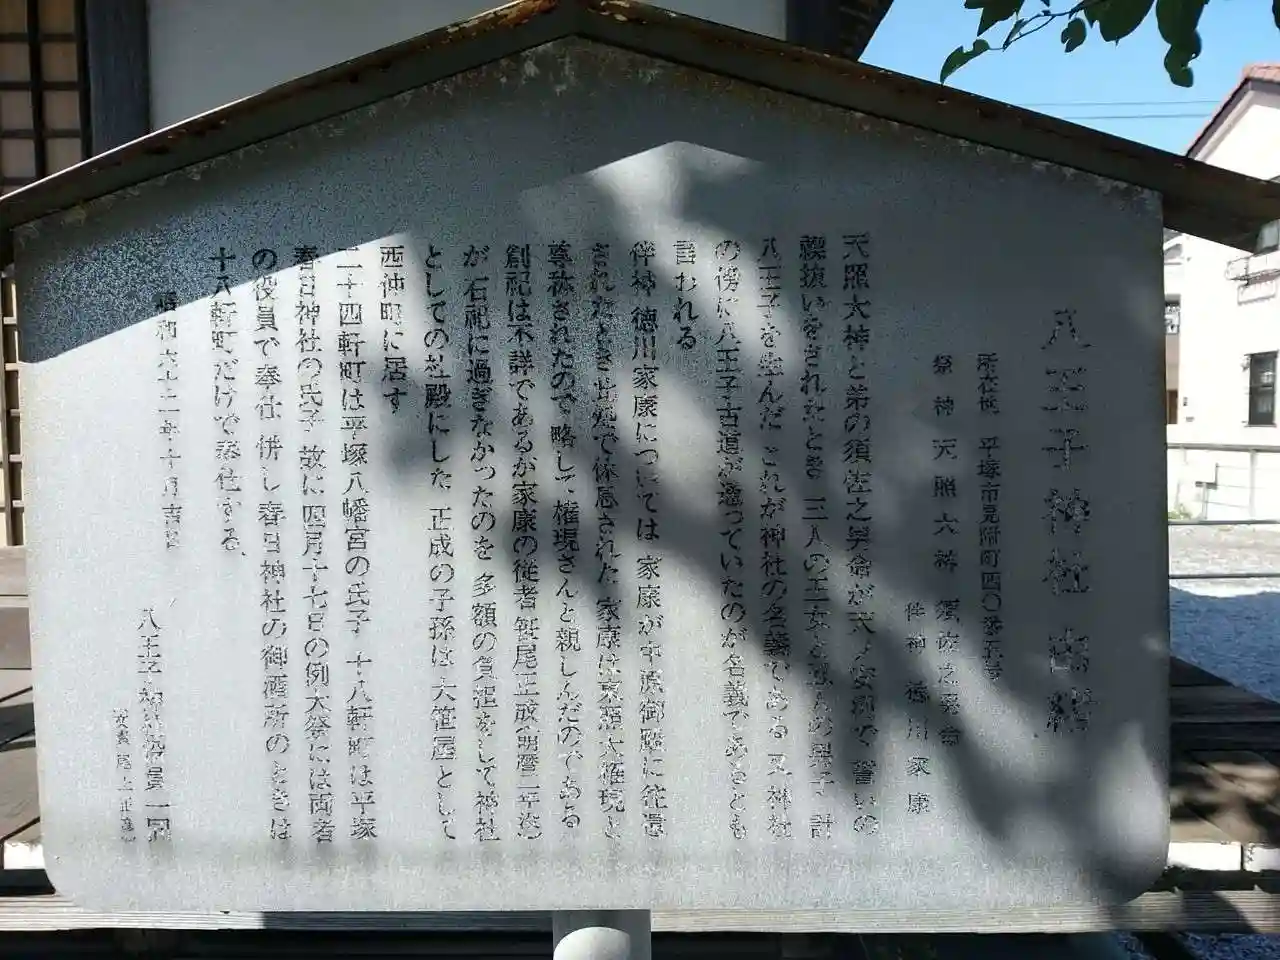 八王子神社 由緒
所在地 平塚市見附町四〇番五号
祭神 天照大神 須佐之男命
伴神 徳川家康
天照大神と弟の須佐之男命が天ノ安河で誓いの
禊祓いをされたとき 三人の王女と五人の男子 計
八王子を生んだ これが神社の名義である 又神社
の傍に八王子古道が通っていたのが名義であるとも
言われる
伴神 徳川家康については 家康が中原御殿に往還
されたとき 此処で休息された 家康は東照大権現と
尊称されたので 略して権現さんと親しんだのである
創祀は不詳であるが家康の従者 尾正成 明暦二年
が 石祀に過ぎなかったのを 多額の負担をして神社
としての社殿にした 正成の子孫は 大笹屋として
西仲町に居す
二十四軒町は平塚八幡宮の氏子 十八軒町は平塚
春日神社の氏子 故に四月十七日の例大祭には両者
の役員で奉仕 併し春日神社の御酒所のときは
十八軒町だけで奉仕する、
昭和六十二年十月吉日
八王子神社役員一同